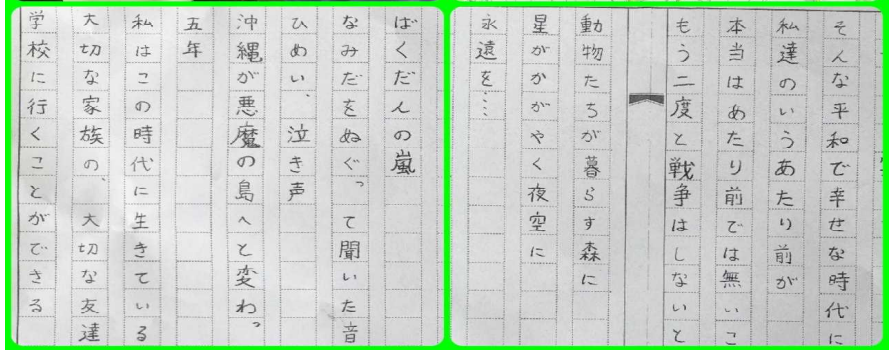 ばくだんの嵐
なみだをぬぐって聞いた音
ひめい、泣き声
沖縄が悪魔の島へと変わっ
五年
私はこの時代に生きている
大切な家族の、大切な友達
学校に行くことができる
そんな平和で幸せな時代に
私達のいうあたり前が
本当はあたり前では無いこ
もう二度と戦争はしないと
動物たちが暮らす森に
星がかがやく夜空に
永遠を……